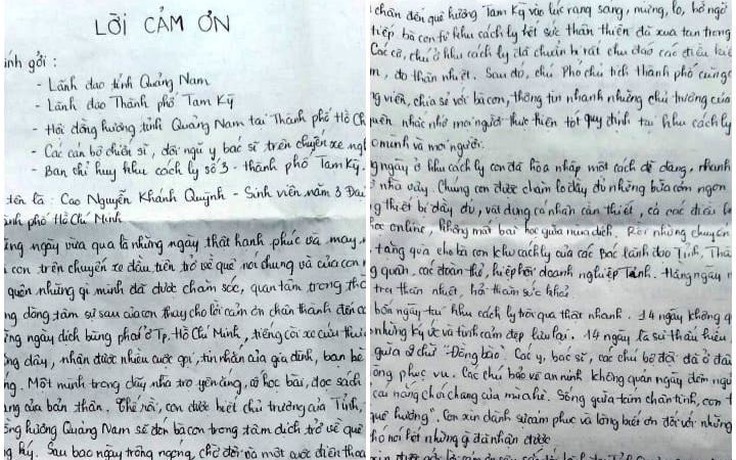 LỜI CẢM ƠN
ính gởi :
- Lãnh đạo tỉnh Quảng Nam
- Lãnh đạo Thành phố Tam Kỳ
- Hội đồng hương tỉnh Quảng Nam tại Thành phố Hồ Ch
- Các cán bộ chiến sĩ, đội ngũ y bác sĩ trên chuyến xe ng
- Ban chỉ huy khu cách ly số 3 - thành phố Tam Kỳ.
tên là : Cao Nguyễn Khánh Quỳnh - Sinh viên năm 3 Đại
ành phố Hồ Chí Minh
ững ngày vừa qua là những ngày thật hạnh phúc và may
con trên chuyến xe đầu tiên trở về quê nói chung và của con
quên những gì mình đã được chăm sóc, quan tâm trong th
g dòng tâm sự sau của con thay cho lời cảm ơn chân thành đến cá
ững ngày dịch bùng phát ở Tp. Hồ Chí Minh, tiếng còi xe cứu thư
ng dây, nhận được nhiều cuộc gọi, tin nhắn của gia đình, bạn bè
ng. Một mình trong dãy nhà trọ yên ắng, cố học bài, đọc sách
ng của bản thân. Thế rồi, con được biết chủ trương của Tỉnh,
ồng hương Quảng Nam sẽ đón bà con trong tâm dịch trở về quê
g ký. Sau bao ngày trông ngóng, chờ đợi và một cuộc điện thoạ
chân đến quê hương Tam Kỳ vào lúc rạng sáng, mừng, lo, bỡ ngỡ
tiếp bà con từ khu cách ly hết sức thân thiện đã xua tan trong
Các cô, chú ở khu cách ly đã chuẩn bị rất chu đáo các điều kiệ
n, đo thân nhiệt. Sau đó, chú Phó chủ tịch thành phố cùng c
g viên, chia sẻ với bà con, thông tin nhanh những chủ trương của
uên nhắc nhở mọi người thực hiện tốt quy định tại khu cách ly
o mình và mọi người.
g ngày ở khu cách ly con đã hòa nhập một cách dễ dàng, nhanh
ở nhà vậy. Chúng con được chăm lo đầy đủ những bữa cơm ngon
g thiết bị đầy đủ, vật dụng cá nhân cần thiết, cả các điều k
ọc online, không mất bài học giữa mùa dịch. Rồi những chuyến
tặng quà cho bà con khu cách ly của các Bác lãnh đạo Tỉnh, Thà
g quân, các đoàn thể, hiệp hội doanh nghiệp Tỉnh. Hằng ngày
tra thân nhiệt, hỏi thăm sức khỏe
bốn ngày từ khu cách ly trôi qua thật nhanh. 14 ngày không q
những ký ức và tình cảm đẹp lưu lại. 14 ngày là sự thấu hiểu
giữa 2 chữ "Đồng bào". Các y, bác sĩ, các chú bộ đội đã ở đâ
ông phục vụ. Các chú bảo vệ an ninh không quản ngày đêm ngo
cái nắng chói chang của mùa hè. Sống giữa tấm chân tình, con t
quê hương". Con xin dành sự cảm phục và lòng biết ơn đối với những
hó nói hết những gì đã nhận được